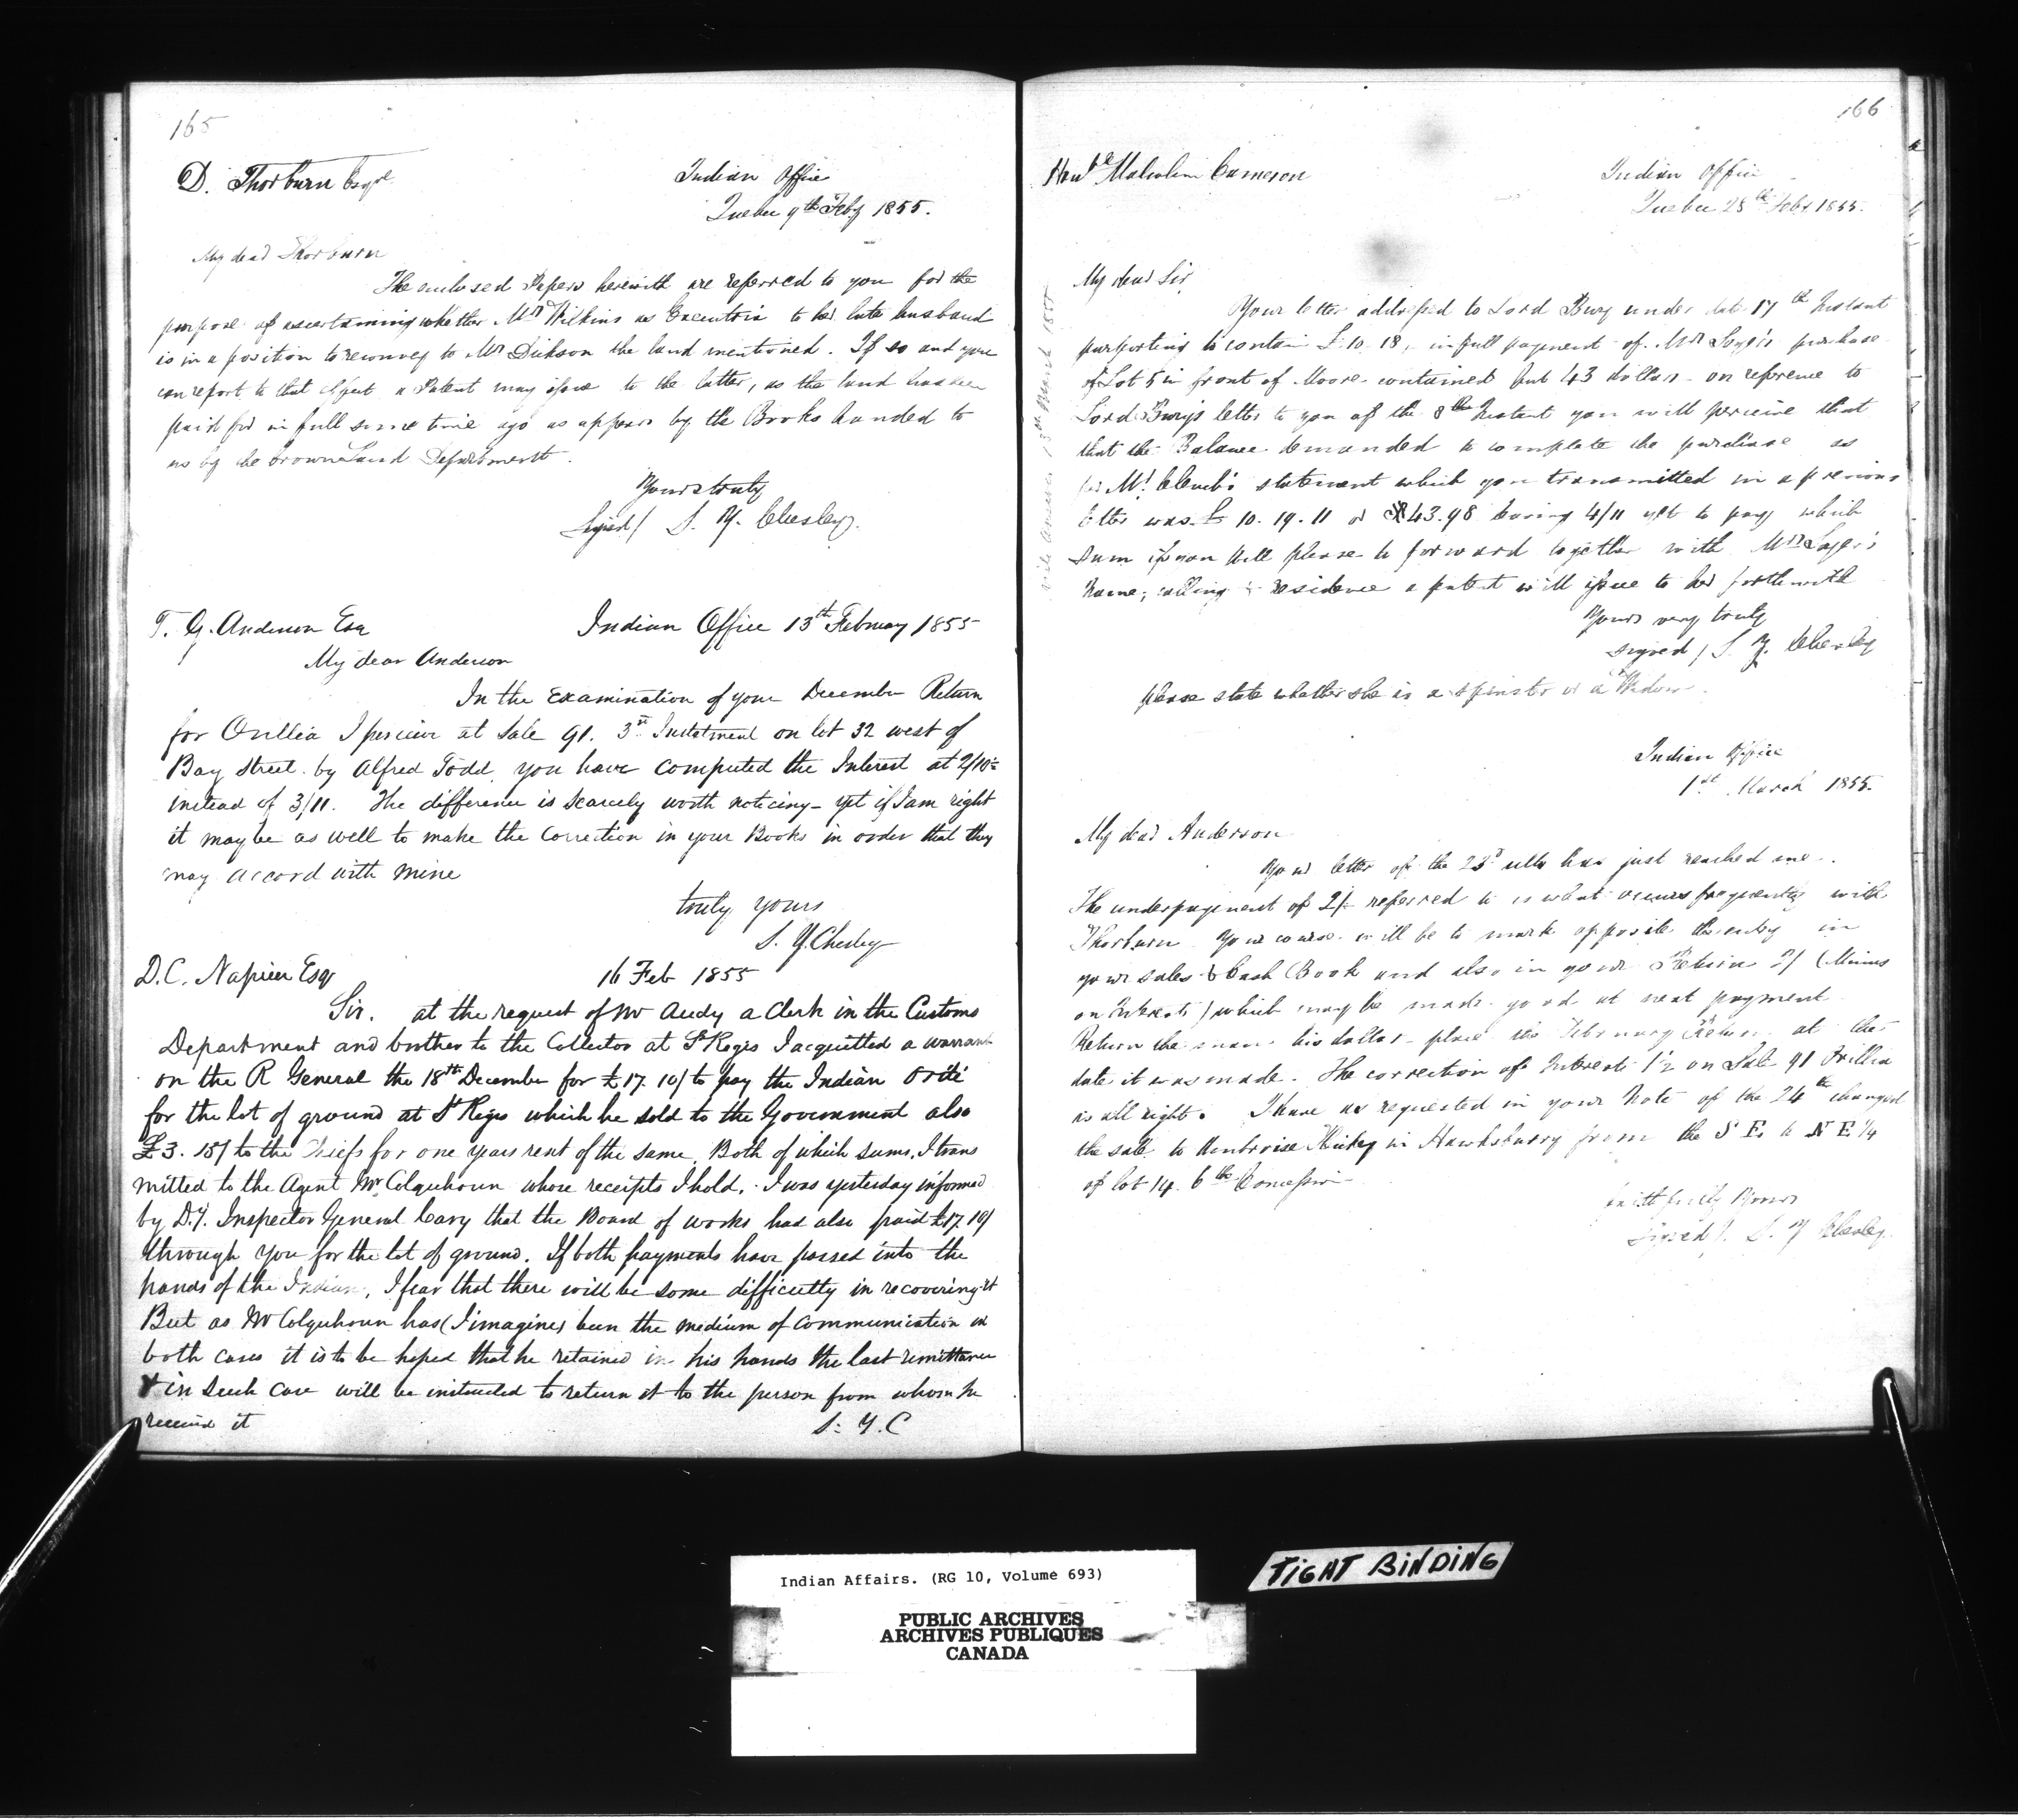 165
D. Thorburn Esqre
Indian Office
Quebec 9th Feby 1855.
My dear Thorburn
The enclosed Papers herewith are referred to you for the
purpose of ascertaining whether Mrs Wilkins as Executrix to her late husband
is in a position to reconvey to Mr Dickson the land mentioned. If so and you
can report to that effect a Patent may issue to the latter, as the land has been
paid for in full some time ago as appears by the Books handed to
us by the Crown Land Department.
Yours truly
Signed/ S. Y. Chesley.
T. G. Anderson Esq
Indian Office 13th February 1855
My dear Anderson
In the Examination of your December Return
for Orillia I perceive at Sale 91. 3rd Instalment on lot 32 west of
Bay Street by Alfred Todd, you have computed the Interest at 2/10½
instead of 3/11. The difference is scarcely worth noticing - yet if I am right
it may be as well to make the Correction in your Books in order that they
may accord with mine
truly yours
S. Y. Chesley
D. C. Napier Esqr
16 Feb 1855
Sir. at the request of Mr Audy a Clerk in the Customs
Department and brother to the Collector at St Regis I acquitted a warrant
on the R General the 18th December for £17. 10/ to pay the Indian
for the lot of ground at St Regis which he sold to the Government also
£3. 15/ to the Chiefs for one years rent of the same. Both of which sums, I trans
mitted to the Agent Mr Colquhoun whose receipts I hold. I was yesterday informed
by Dy. Inspector General Cary that the Board of works had also paid £17. 10/
through you for the lot of ground. If both payments have passed into the
hands of the Indian, I fear that there will be some difficulty in recovering it
But as Mr Colquhoun has (I imagine) been the medium of communication in
both cases it is to be hoped that he retained in his hands the last remittance
& in such case will be instructed to return it to the person from whom he
received it
S. Y. C
166
Honble Malcolm Cameron
Indian Office
Quebec 28th Feby 1855.
My dear Sir
Your letter addressed to Lord Bury under date 17th Instant
purporting to contain £10. 18, in full payment of Mrs purchase
of Lot 5 in front of Moore contained but 43 dollars - on reference to
Lord Bury's letter to you of the 8th Instant you will perceive that
that the Balance demanded to complete the purchase as
per Mr Clench's statement which you transmitted in a previous
letter was £10. 19. 11 or $43.98 leaving 4/11 yet to pay which
sum if you will please to forward together with Mrs
name, calling & residence a patent will issue to her forthwith
Yours very truly
signed / S. Y. Chesley
please state whether she is a spinster or a Widow.
13th March 1855
Indian Office
1st March 1855.
My dear Anderson
Your letter of the 23d ulto has just reached me.
The underpayment of 2/- referred to is what occurs frequently with
Thorburn. Your course will be to mark opposite the entry in
your sales & Cash Book and also in your Return 2/ (Minus
on Interest) which may be made good at next payment
Return the man his dollar - place in February Return at the
date it was made. The correction of Interest 1/2 on Sale 91 Orillia
is all right. I have as requested in your Note of the 24th changed
the sale to Ambroise in Hawksburry from the S E. to N E ¼
of lot 14. 6th Concession
faithfully Yours
Signed/. S. Y Chesley
Indian Affairs. (RG 10, Volume 693)
PUBLIC ARCHIVES
ARCHIVES PUBLIQUES
CANADA
TIGHT BINDING